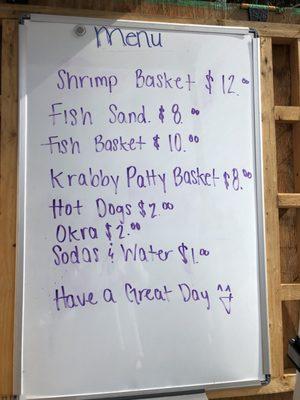 Menu
Shrimp Basket $12.00
Fish Sand. $8.00
Fish Basket $10.00
Krabby Patty Basket $8.00
Hot Dogs $2.00
Okra $2.00
Sodas & Water $1.00
Have a Great Day